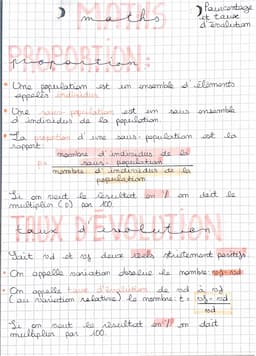 MATHS
maths
Pourcentage
et taux
d'évolution
PROPORTION:
proportion
Une population est un ensemble d'éléments
appelés individus
Une sous-population est un sous ensemble
d'individus de la population.
La proportion d'une sous-population est le
rapport:
nombre d'individus de la
sous-population
nombre d'individus de la
population
Si on veut le résultat en % on doit le
multiplier (p) par 100.
TAUX D'EVOLUTION
taux d'évolution
Soit vd et vf deux réels strictement positifs
On appelle variation absolue le nombre vf-vd
On appelle taux d'évolution de vd à vf
(ou variation relative) le nombre: t = vf-vd
vd
Si on veut le résultat en % on doit
multiplier par 100.